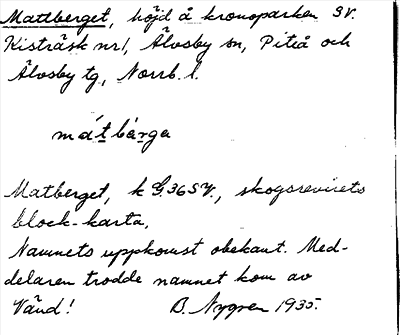 Mattberget, höjd å kronoparken SV.
Kisträsk nr 1, Älvsby sn, Piteå och
Älvsby tg, Norrb. l.
mát̲ bàr̲ga
Matberget, k G.36SV., skogsrevirets
block-karta.
Namnets uppkomst obekant. Med-
delaren trodde namnet kom av
Vänd! B. Nygren 1935.